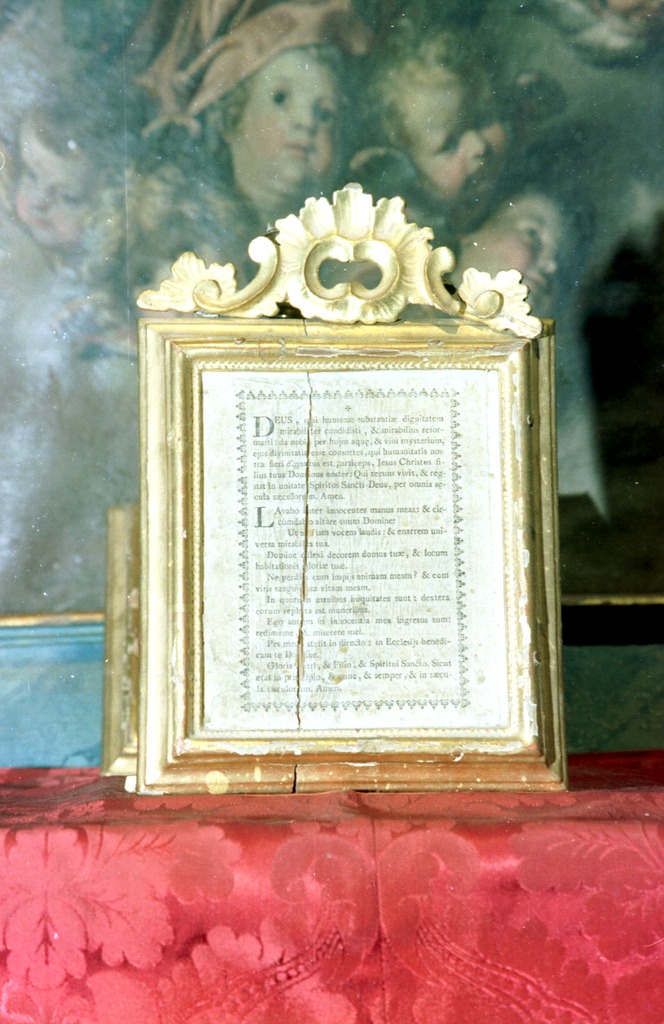 DEUS, qui humanæ substantiæ dignitatem
mirabiliter condidisti, & mirabilius refor-
masti: da nobis per hujus aquæ, & vini mysterium,
ejus divinitatis esse consortes, qui humanitatis nos-
træ fieri dignatus est particeps, Jesus Christus fi-
lius tuus Dominus noster: Qui tecum vivit, & reg-
nat in unitate Spiritus Sancti Deus, per omnia sæ-
cula sæculorum. Amen.
LAvabo inter innocentes manus meas: & cir-
cumdabo altare tuum Domine:
Ut audiam vocem laudis: & enarrem uni-
versa mirabilia tua.
Domine dilexi decorem domus tuæ, & locum
habitationis gloriæ tuæ.
Ne perdas cum impijs animam meam: & cum
viris sanguinum vitam meam.
In quorum manibus iniquitates sunt: dextera
eorum repleta est muneribus.
Ego autem in innocentia mea ingresus sum:
redime me & miserere mei.
Pes meus stetit in directo: in Ecclesijs benedi-
cam te Domine.
Gloria Patri, & Filio, & Spiritui Sancto. Sicut
erat in principio, & nunc, & semper, & in sæcu-
la sæculorum. Amen.